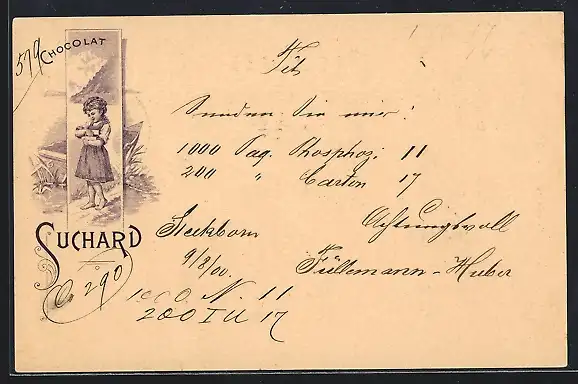 579
CHOCOLAT
Tit
Senden Sie mir!
1000 Paq. Phosphoz. 11
200 " Carton 17
Achtungsvoll
SUCHARD
Steckborn
9/8/00.
Füllemann-Huber
290
1000. N. 11
200 I U 17